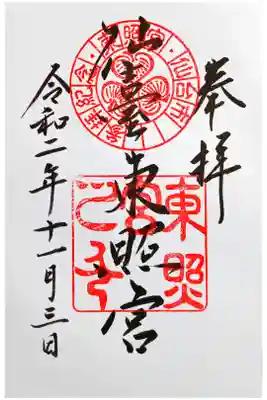 奉拝
仙臺東照宮
令和二年十一月三日
仙台市
東照宮